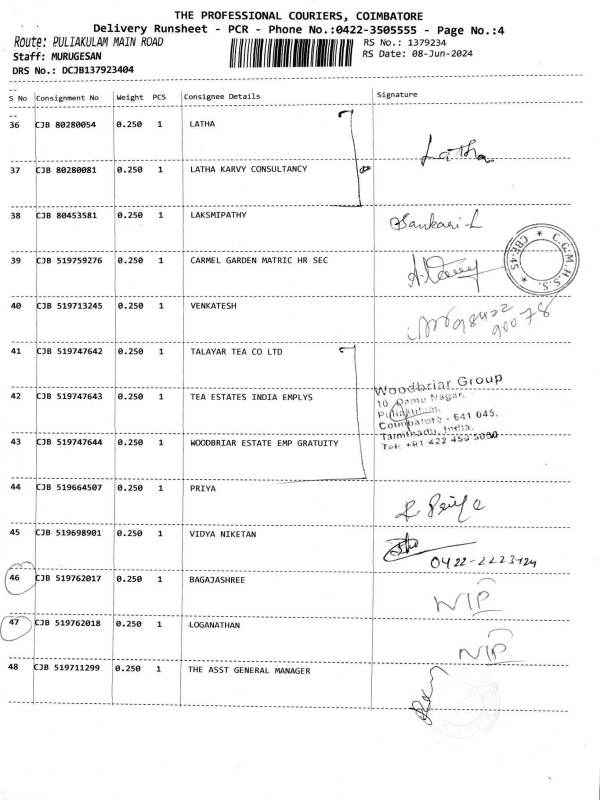 THE PROFESSIONAL COURIERS, COIMBATORE
Delivery Runsheet - PCR - Phone No.:0422-3505555 - Page No.:4
Route: PULIAKULAM MAIN ROAD
RS No.: 1379234
Staff: MURUGESAN
RS Date: 08-Jun-2024
DRS No.: DCJB137923404
S No Consignment No Weight PCS Consignee Details Signature
36 CJB 80280054 0.250 1 LATHA
Latha
37 CJB 80280081 0.250 1 LATHA KARVY CONSULTANCY
38 CJB 80453581 0.250 1 LAKSMIPATHY
Sankari-L
39 CJB 519759276 0.250 1 CARMEL GARDEN MATRIC HR SEC
C.G.M.H.S.S. * CBE-45 *
40 CJB 519713245 0.250 1 VENKATESH
41 CJB 519747642 0.250 1 TALAYAR TEA CO LTD
42 CJB 519747643 0.250 1 TEA ESTATES INDIA EMPLYS
Woodbriar Group
10, Damu Nagar,
Puliakulam,
Coimbatore - 641 045.
Tamilnadu, India.
Tel: +91 422 459 5000
43 CJB 519747644 0.250 1 WOODBRIAR ESTATE EMP GRATUITY
44 CJB 519664507 0.250 1 PRIYA
R. Priya
45 CJB 519698901 0.250 1 VIDYA NIKETAN
46 CJB 519762017 0.250 1 BAGAJASHREE
NIP
47 CJB 519762018 0.250 1 LOGANATHAN
NIP
48 CJB 519711299 0.250 1 THE ASST GENERAL MANAGER